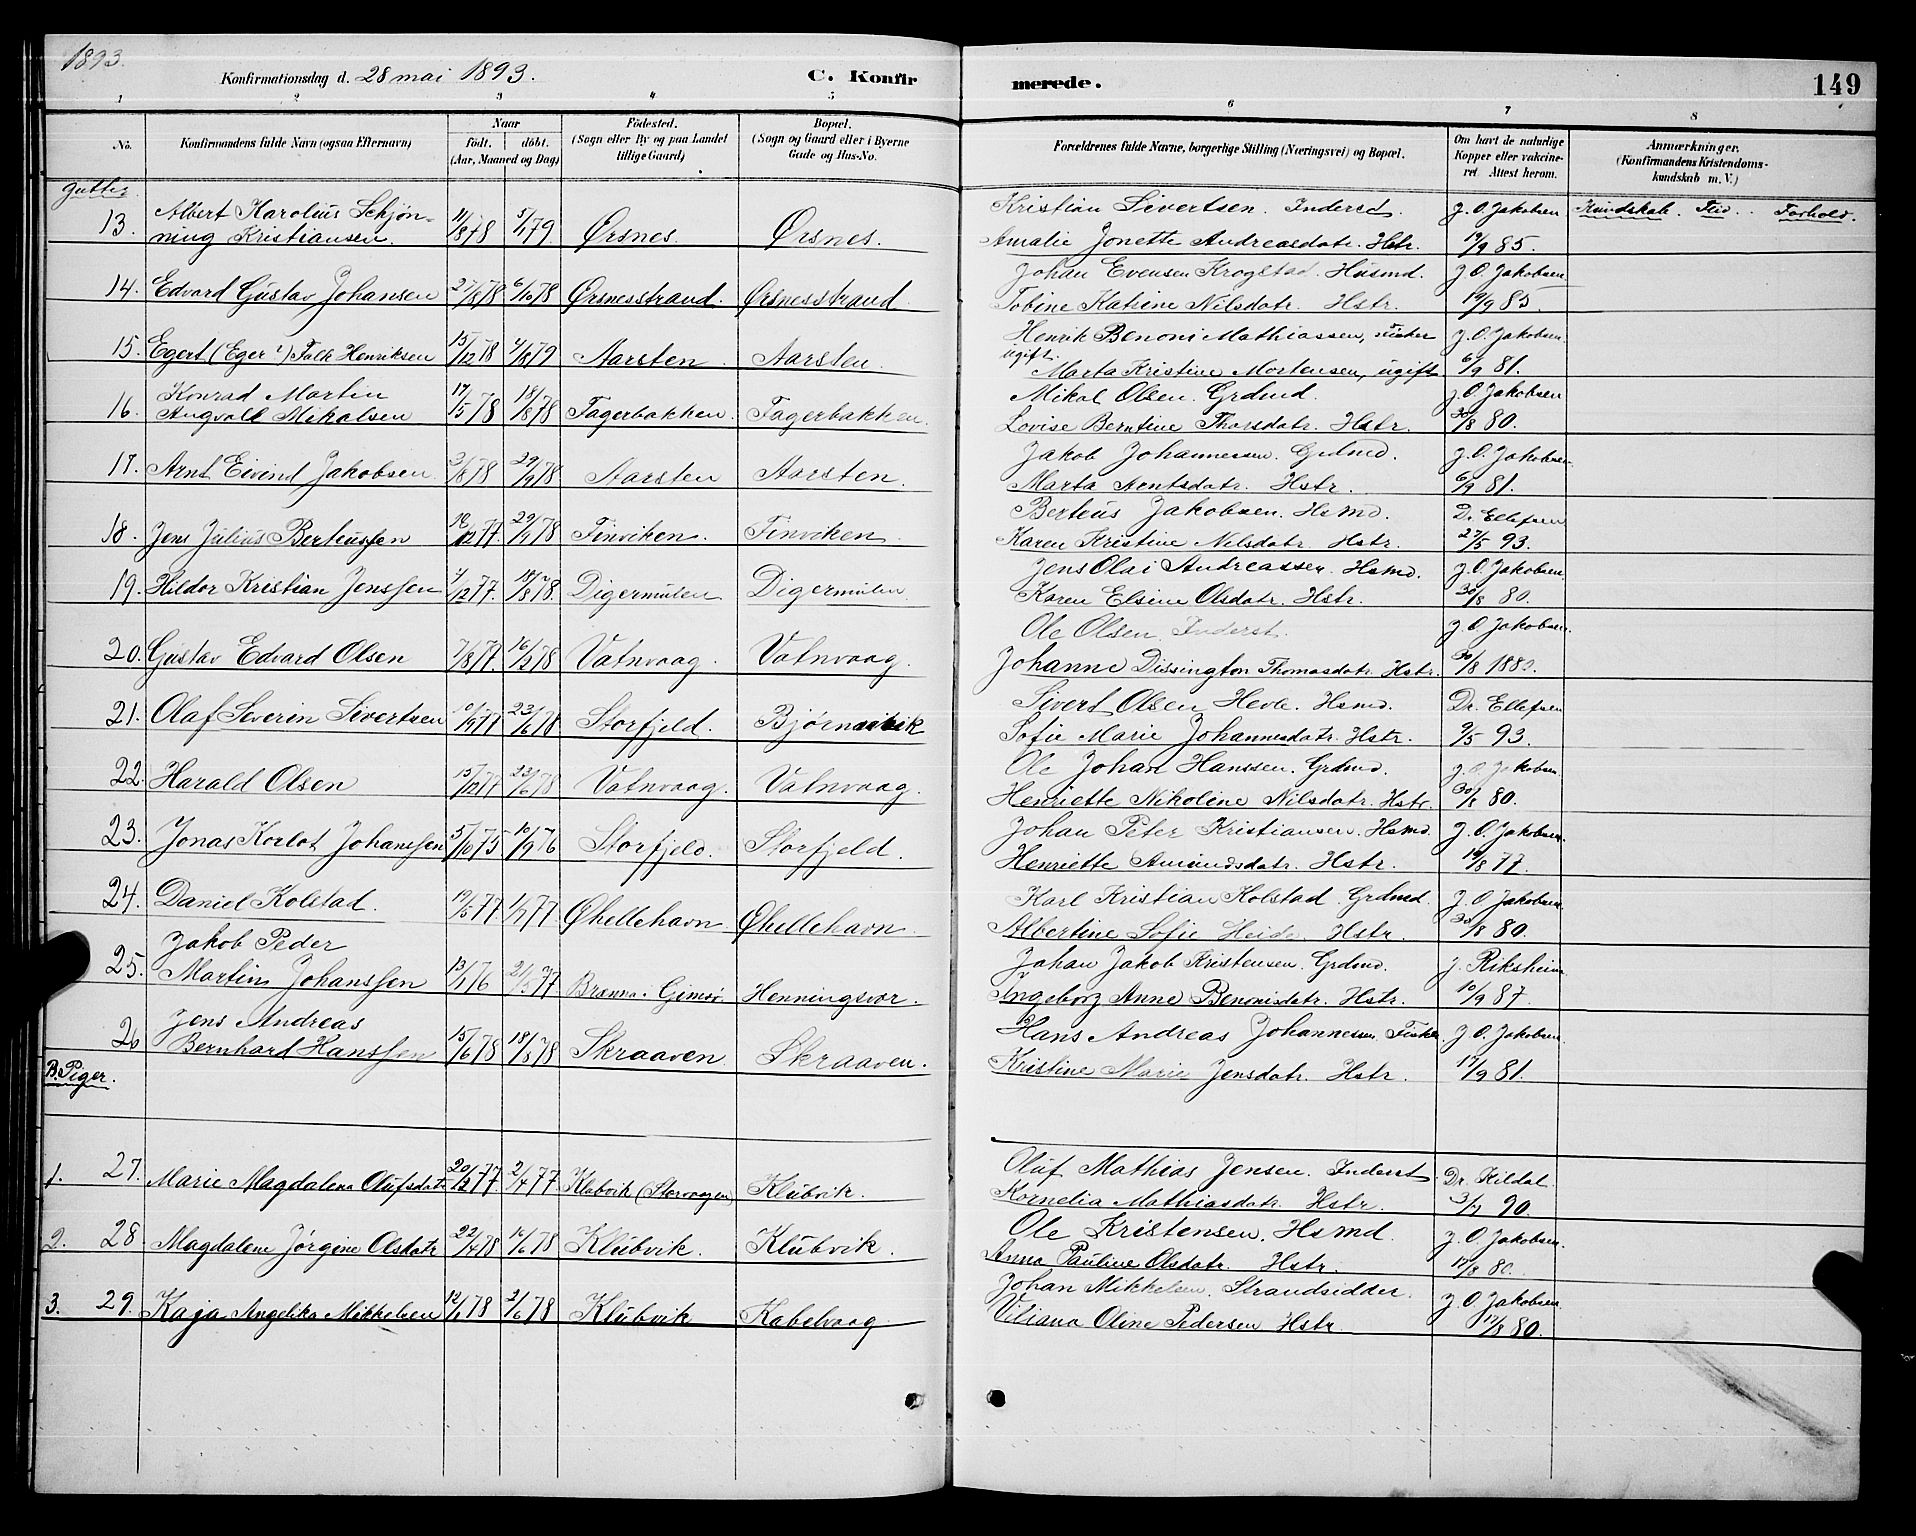 1893.
Konfirmationsdag d. 28 mai 1893.
C. Konfirmerede.
149
1 2 3 4 5 6 7 8
No.
Konfirmandens fulde Navn (ogsaa Efternavn)
Naar
födt. döbt.
(Aar, Maaned og Dag)
Födested.
(Sogn eller By og paa Landet
tillige Gaard)
Bopæl.
(Sogn og Gaard eller i Byerne
Gade og Hus-No.
Forældrenes fulde Navne, borgerlige Stilling (Næringsvei) og Bopæl.
Om havt de naturlige
Kopper eller vakcine-
ret. Attest herom.
Anmærkninger.
(Konfirmandens Kristendoms-
kundskab m. V.)
Gutter
Kundskab. Flid. Forhold.
13. Albert Karolius Schjøn-
ning Kristiansen. 11/8 78 5/1 79 Ørsnes. Ørsnes.
Kristian Sivertsen. Inderst. J. O. Jakobsen
Amalie Jonette Andreasdatr. Hstr. 19/9 85.
14. Edvard Gustav Johansen 27/8 78 6/10 78 Ørsnesstrand. Ørsnesstrand.
Johan Evensen Krogstad. Husmd. J. O. Jakobsen
Tobine Katrine Nilsdatr. Hstr. 19/9 85
15. Egert (Eger!) Falk Henriksen 15/12 78 4/8 79 Aarsten. Aarsten.
Henrik Benoni Mathiassen, Fisker J. O. Jakobsen
ugift.
Marta Kristine Mortensen, ugift 6/9 81.
16. Konrad Martin
Angvall Mikalsen 17/5 78 18/8 78 Fagerbakken. Fagerbakken.
Mikal Olsen. Grdmd. J. O. Jakobsen
Lovise Berntine Thorsdatr. Hstr. 30/8 80.
17. Arnt Eivind Jakobsen 3/8 78 29/9 78 Aarsten Aarsten.
Jakob Johannessen. Grdmd. J. O. Jakobsen
Marta Arntsdatr. Hstr. 6/9 81.
18. Jens Julius Berteussen 12 77. 29/1 78 Finviken. Finviken.
Berteus Jakobsen. Hsmd. Dr. Ellefsen
Karen Kristine Nilsdatr. Hstr. 27/5 93.
19. Hildor Kristian Jenssen 4/12 77. 18/8 78. Digermulen Digermulen.
Jens Olai Andreassen. Hsmd. J. O. Jakobsen
Karen Elsine Olsdatr. Hstr. 30/8 80.
20. Gustav Edvard Olsen 7/8 77. 16/2 78 Vatnvaag. Vatnvaag.
Ole Olsen. Inderst. J. O. Jakobsen.
Johanne Dissington Thomasdatr. Hstr. 30/8 1880.
21. Olaf Severin Sivertsen 10/9 77 23/6 78 Storfjeld. Bjørnvik
Sivert Olsen Hevle. Hsmd. Dr. Ellefsen
Sofie Marie Johannesdatr. Hstr. 9/5 93.
22. Harald Olsen 15/12 77 23/6 78 Vatnvaag. Vatnvaag.
Ole Johan Hanssen. Grdmd. J. O. Jakobsen
Henriette Nikoline Nilsdatr. Hstr. 30/8 80.
23. Jonas Korlot Johanssen 5/10 75 10/9 76 Storfjeld. Storfjeld.
Johan Peter Kristiansen. Hsmd. J. O. Jakobsen
Henriette Amundsdatr. Hstr. 19/8 77.
24. Daniel Kolstad. 19/5 77 1/7 77 Øhellehavn Øhellehavn.
Karl Kristian Kolstad. Grdmd. J. O. Jakobsen
Albertine Sofie Heide. Hstr. 30/8 80.
25. Jakob Peder
Martin Johanssen 13/1 76 21/5 77 Brænna i Gimsø Henningsvær.
Johan Jakob Kristensen. Grdmd. J. Riksheim
Ingeborg Anne Benonisdatr. Hstr. 10/9 87.
26 Jens Andreas
Bernhard Hanssen 15/6 78 18/8 78 Skraaven Skraaven.
Hans Andreas Johannessen Fisker. J. O. Jakobsen
Kristine Marie Jensdatr. Hstr. 17/9 81.
B. Piger.
1. 27. Marie Magdalena Olufsdatr 20/2 77. 2/4 77 Klubvik (Storvaagen) Klubvik.
Oluf Mathias Jensen. Inderst Dr. Kildal
Kornelia Mathiasdatr. Hstr. 3/7 90.
2. 28 Magdalene Jørgine Olsdatr 22/4 78 16/6 78 Klubvik. Klubvik.
Ole Kristensen. Hsmd. J. O. Jakobsen.
Anna Pauline Olsdatr. Hstr. 17/8 80.
3. 29. Kaja Angelika Mikkelsen 12/1 78 2/6 78 Klubvik Kabelvaag
Johan Mikkelsen. Strandsidder. J. O. Jakobsen
Viliana Oline Pedersen Hstr. 17/8 80.